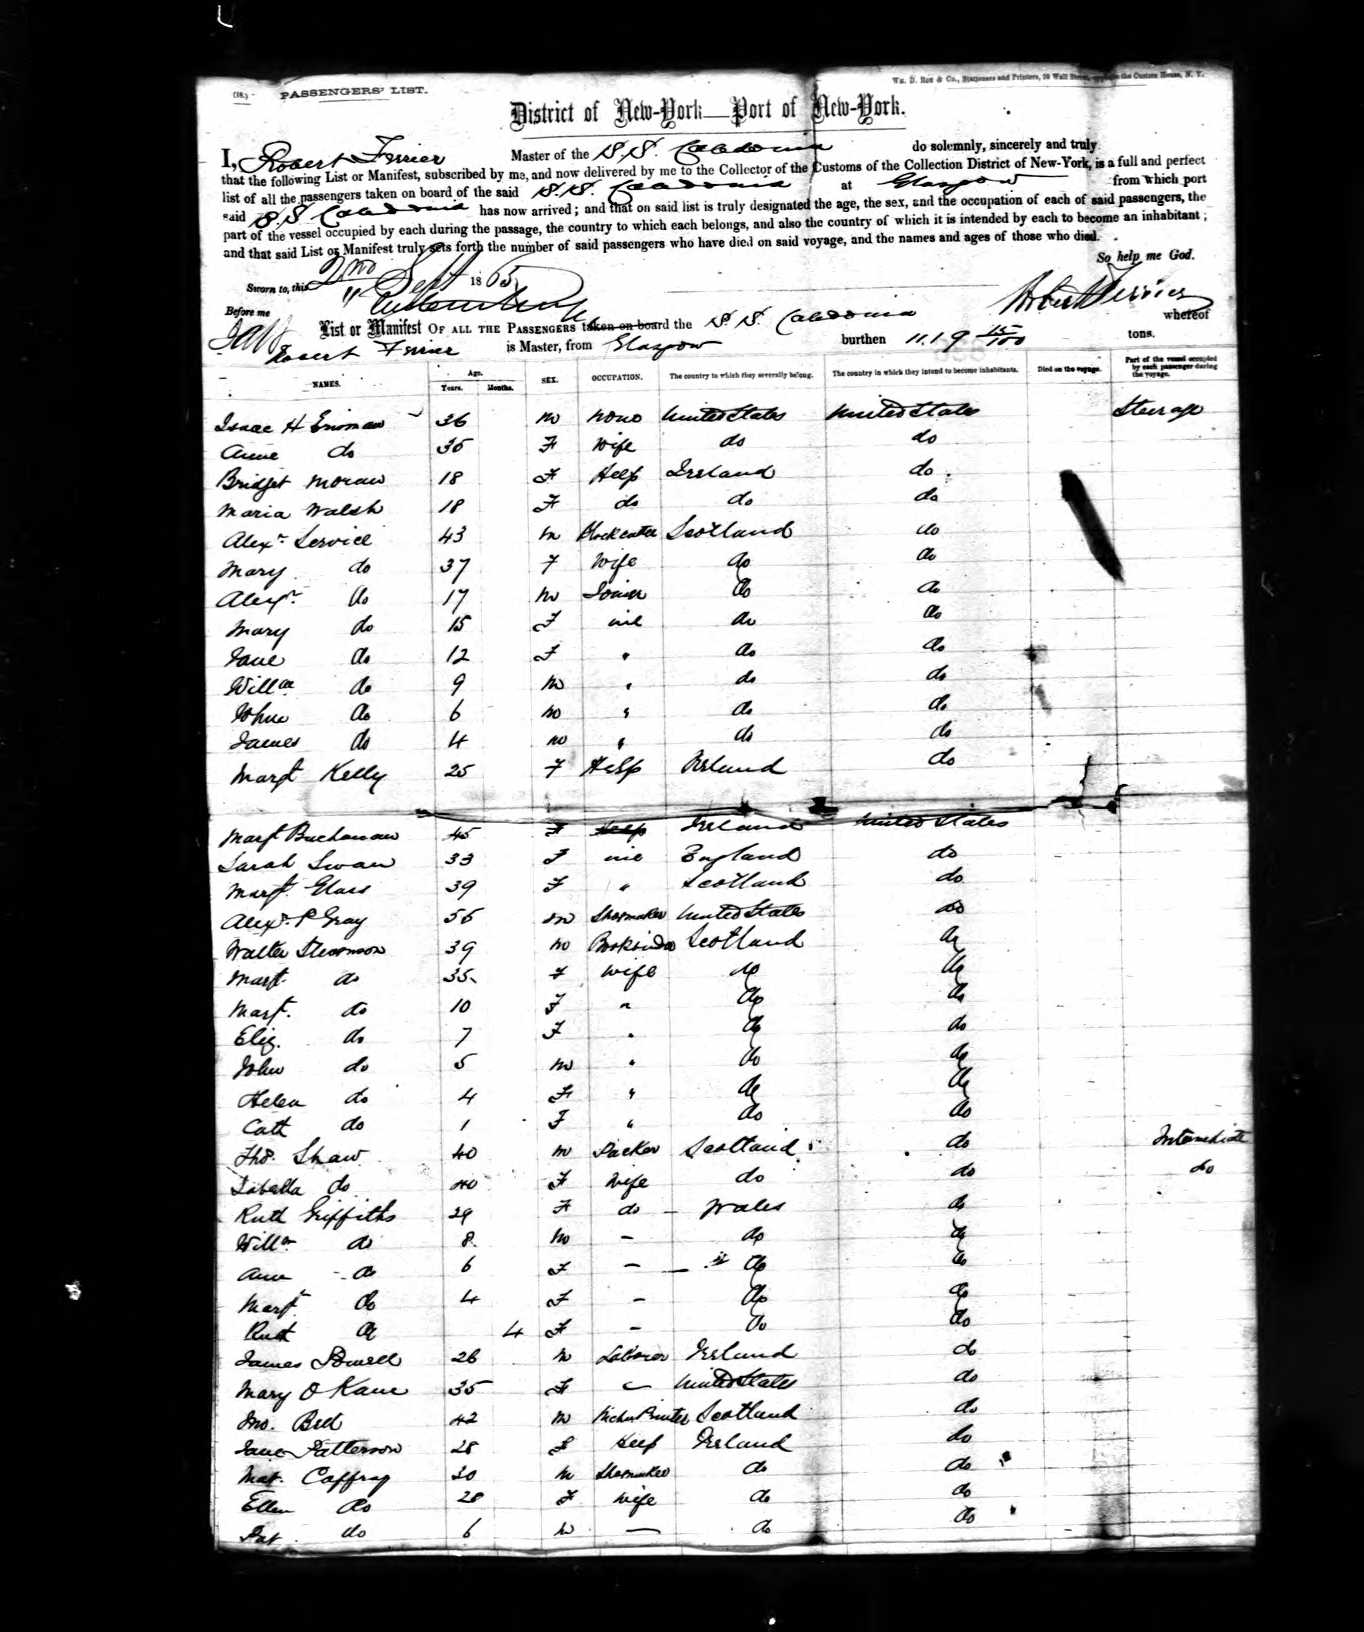 (18.)
PASSENGERS' LIST.
Wm. D. Roe & Co., Stationers and Printers, 20 Wall Street, opposite the Custom House, N. Y.
District of New-York—Port of New-York.
I, Robert Ferrier Master of the S.S. Caledonia do solemnly, sincerely and truly
that the following List or Manifest, subscribed by me, and now delivered by me to the Collector of the Customs of the Collection District of New-York, is a full and perfect
list of all the passengers taken on board of the said S.S. Caledonia at Glasgow from which port
said S.S Caledonia has now arrived; and that on said list is truly designated the age, the sex, and the occupation of each of said passengers, the
part of the vessel occupied by each during the passage, the country to which each belongs, and also the country of which it is intended by each to become an inhabitant;
and that said List or Manifest truly sets forth the number of said passengers who have died on said voyage, and the names and ages of those who died.
So help me God.
Sworn to, this 2nd Sept 1865
Before me
Robert Ferrier
List or Manifest OF ALL THE PASSENGERS taken on board the S.S. Caledonia whereof
Robert Ferrier is Master, from Glasgow burthen 1119 15/100 tons.
NAMES. Age. Years. Months. SEX. OCCUPATION. The country to which they severally belong. The country in which they intend to become inhabitants. Died on the voyage. Part of the vessel occupied by each passenger during the voyage.
Isaac H 36 m none United States United States Steerage
Anne do 35 F Wife do do
Bridget Moran 18 F Help Ireland do
Maria Walsh 18 F do do do
Alexr Service 43 m Scotland do
Mary do 37 F Wife do do
Alexr do 17 m Joiner do do
Mary do 15 F nil do do
Jane do 12 F " do do
Willm do 9 m " do do
John do 6 m " do do
James do 4 m " do do
Margt Kelly 25 F Help Ireland do
Margt Buchanan 45 F Help Ireland United States
Sarah Swan 33 F nil England do
Margt Glass 39 F " Scotland do
Alexr P Gray 55 m Shoemaker United States do
Walter Stevenson 39 m Bookbinder Scotland do
Margt do 35 F Wife do do
Margt. do 10 F " do do
Eliz. do 7 F " do do
John do 5 m " do do
Helen do 4 F " do do
Cath do 1 F " do do
Thos. Shaw 40 m Packer Scotland do Intermediate
Isabella do 40 F Wife do do do
Ruth Griffiths 29 F do Wales do
Willm do 8 m — do do
Ann do 6 F — do do
Margt do 4 F — do do
Ruth do 4 F — do do
James Powell 26 m Laborer Ireland do
Mary O Kane 35 F United States do
Jno. 42 m Scotland do
Jane Patterson 28 F Help Ireland do
Mat. Caffray 30 m Shoemaker do do
Ellen do 28 F Wife do do
Pat do 6 m — do do